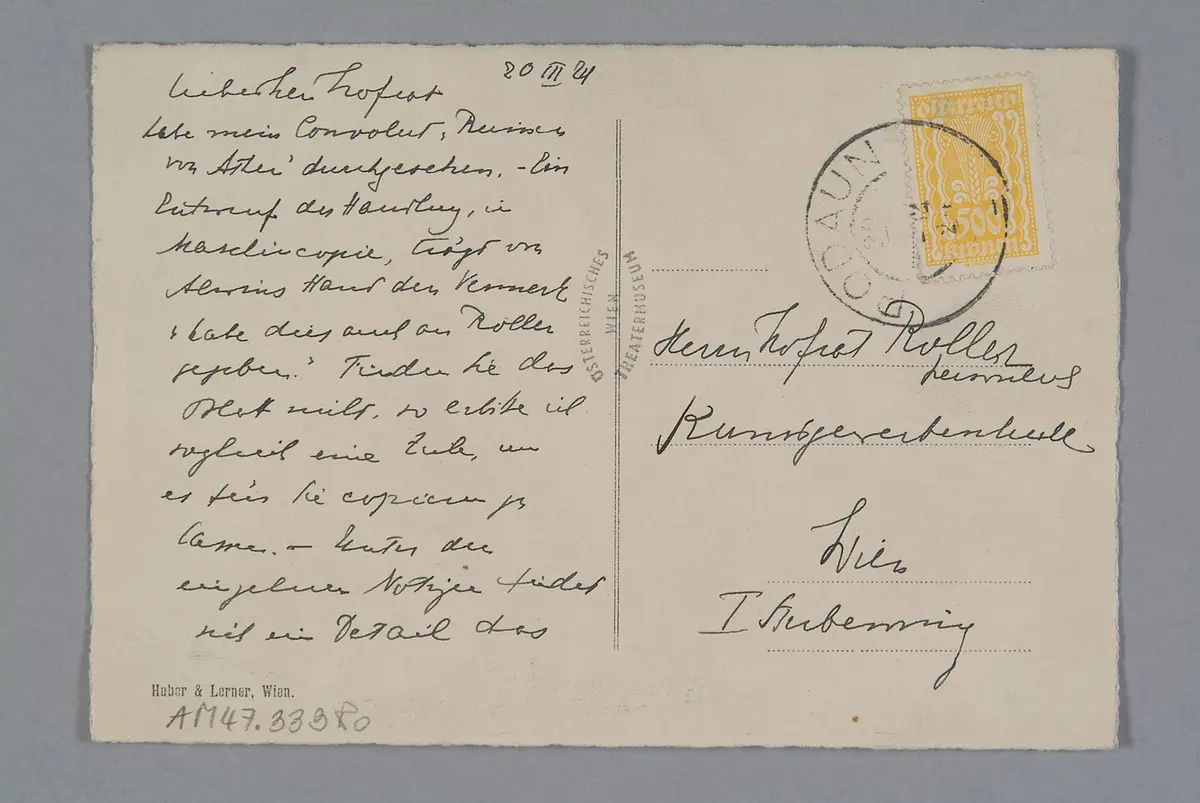 20 III 24
lieber Herr Hofrat
habe mein Convolut, "Ruinen
von Athen" durchgesehen. – Ein
Entwurf der Handlung, in
Maschincopie, trägt von
Hand den Vermerk
"habe dies auch an Roller
gegeben." Finden Sie das
Blatt nicht, so erbitte ich
sogleich eine Zeile, um
es für Sie copieren zu
lassen. – Unter den
einzelnen Notizen findet
sich ein Detail das
Huber & Lerner, Wien.
AM47.333Ro
ÖSTERREICHISCHES
WIEN
THEATERMUSEUM
Österreich
500
Kronen
RODAUN
Herrn Hofrat Roller
Kunstgewerbeschule
Wien
I Stubenring